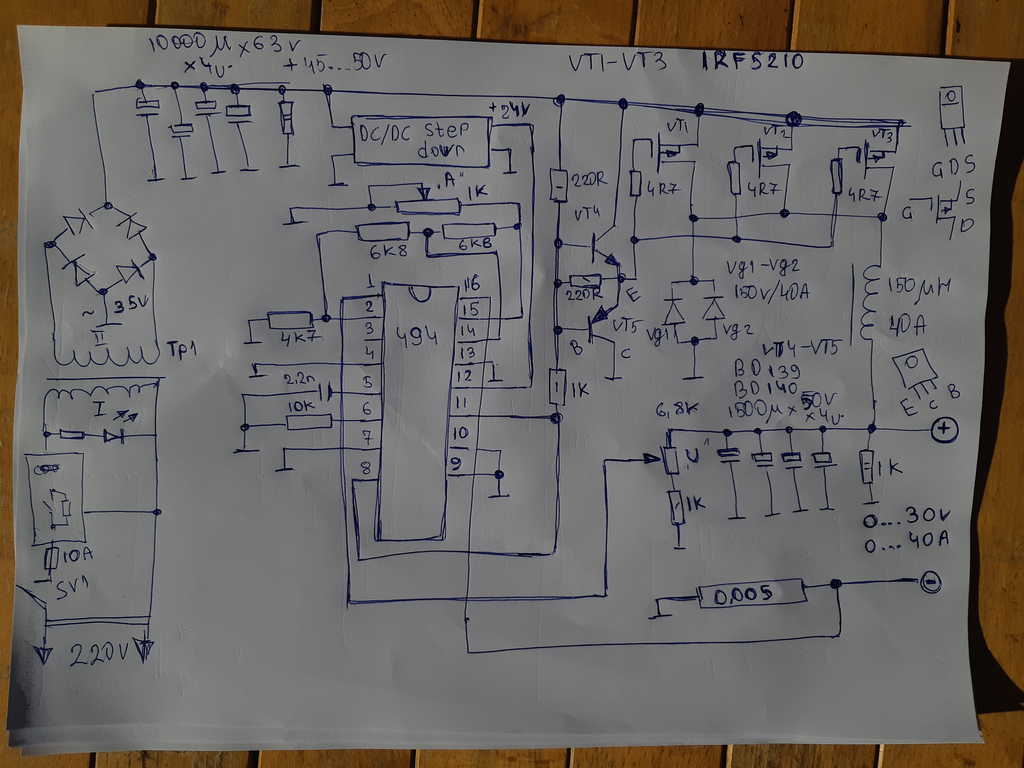 10000µ x 63V
x4v.
+45...50V
VT1-VT3 IRF5210
+24V
DC/DC step
down
"A"
1K
6K8
6K8
VT1
VT2
VT3
4R7
4R7
4R7
GDS
G
S
D
220R
VT4
220R
E
VT5
B
C
1K
Vg1-Vg2
150V/40A
Vg1
Vg2
150µH
40A
~ 35V
II
Tp1
I
10A
SV1
220V
494
1
2
3
4
5
6
7
8
16
15
14
13
12
11
10
9
4K7
2,2n
10K
VT4-VT5
BD139
BD140
1500µ x 50V
x4v.
E C B
6,8K
"U"
1K
+
1K
0...30V
0...40A
0,005
-